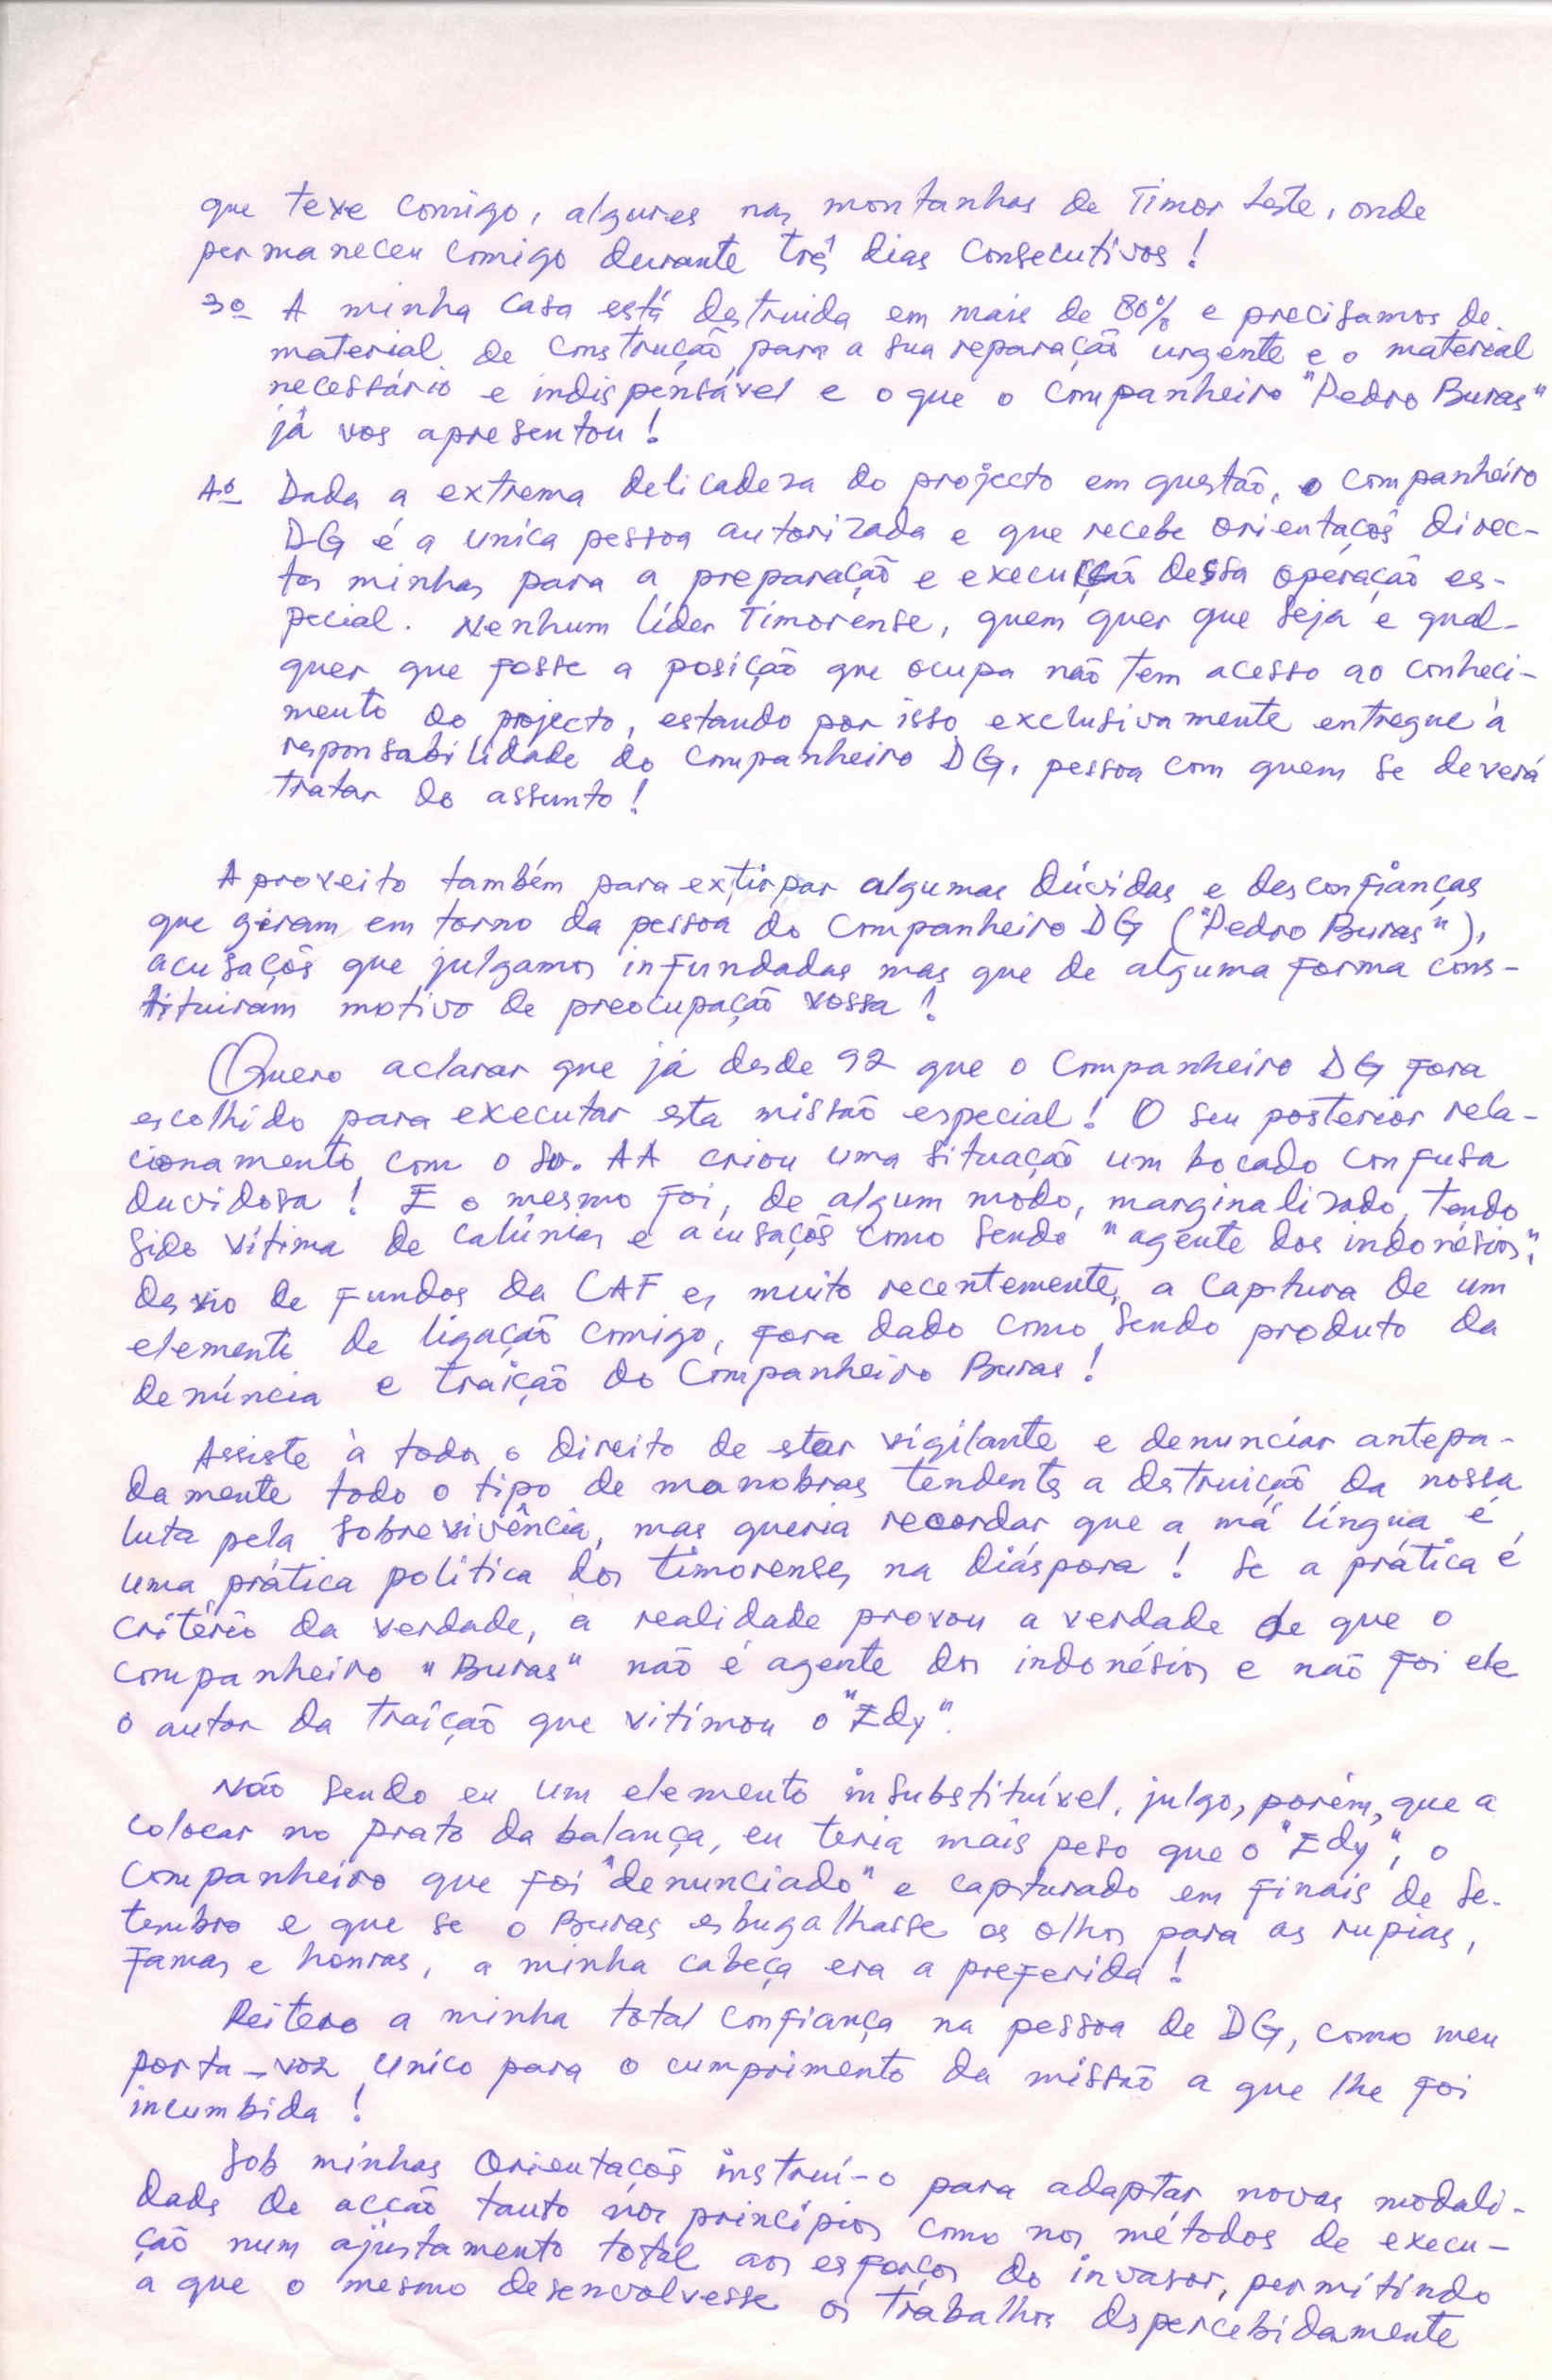 que teve comigo, algures nas montanhas de Timor Leste, onde
permaneceu comigo durante três dias consecutivos!
3º A minha casa está destruida em mais de 80% e precisamos de
material de construção para a sua reparação urgente e o material
necessário e indispensável e o que o companheiro "Pedro Buras"
já vos apresentou!
4º Dada a extrema delicadeza do projecto em questão, o companheiro
DG é a unica pessoa autorizada e que recebe orientaçõs direc-
tas minhas para a preparação e execução dessa operação es-
pecial. Nenhum líder Timorense, quem quer que seja e qual-
quer que fosse a posição que ocupa não tem acesso ao conheci-
mento do projecto, estando por isso exclusivamente entregue à
responsabilidade do companheiro DG, pessoa com quem se deverá
tratar do assunto!
Aproveito também para extirpar algumas dúvidas e desconfianças
que giram em torno da pessoa do companheiro DG ("Pedro Buras"),
acusaçõs que julgamos infundadas mas que de alguma forma cons-
tituiram motivo de preocupação vossa!
Quero aclarar que já desde 92 que o companheiro DG fora
escolhido para executar esta missão especial! O seu posterior rela-
cionamento com o Sr. AA criou uma situação um bocado confusa
duvidosa! E o mesmo foi, de algum modo, marginalizado, tendo
sido vítima de calúnias e acusaçõs como sendo "agente dos indonésios",
desvio de fundos da CAF e, muito recentemente, a captura de um
elemento de ligação comigo, fora dado como sendo produto da
denúncia e traição do Companheiro Buras!
Assiste à todos o direito de estar vigilante e denunciar antepa-
damente todo o tipo de manobras tendentes a destruição da nossa
luta pela sobrevivência, mas queria recordar que a má língua é
uma prática política dos timorenses na diáspora! Se a prática é
critério da verdade, a realidade provou a verdade de que o
companheiro "Buras" não é agente dos indonésios e não foi ele
o autor da traição que vitimou o "Edy".
Não sendo eu um elemento insubstituível, julgo, porém, que a
colocar no prato da balança, eu teria mais peso que o "Edy", o
companheiro que foi "denunciado" e capturado em finais de Se-
tembro e que se o Buras esbugalhasse os olhos para as rupias,
famas e honras, a minha cabeça era a preferida!
Reitero a minha total confiança na pessoa de DG, como meu
porta-voz unico para o cumprimento da missão a que lhe foi
incumbida!
Sob minhas Orientaçõs instruí-o para adaptar novas modali-
dads de acção tanto nos princípios como nos métodos de execu-
ção num ajustamento total aos esforços do invasor, permitindo
a que o mesmo desenvolvesse os trabalhos dspercebidamente